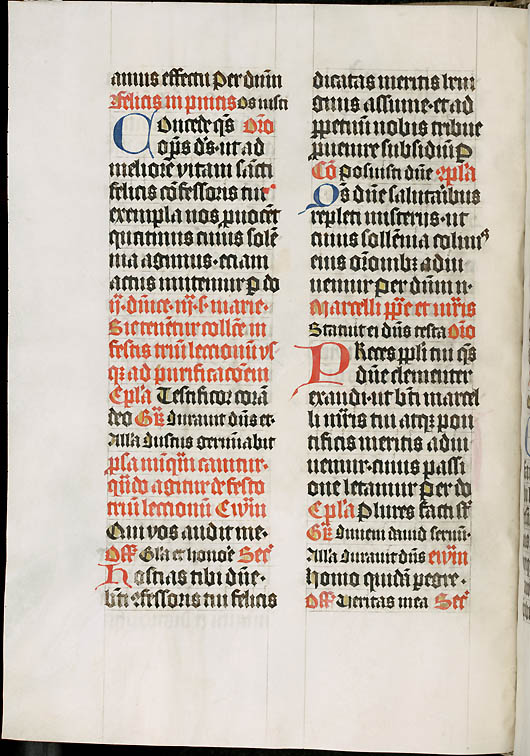 amus effectu Per dnm
felicis in pincis Os iusti
Concede qs Oro
ops ds. ut ad
meliore vitam sacti
felicis cofessoris tui
exempla nos puocet
quatinus cuius sole
nia agimus. etiam
actus imitemur P do
Sic teneatur collce in
festis triu leccionu vs
qz ad purificacoem
Epla Testificor cora
deo Gr Iurauit dns et.
Alla Iustus germiabit
psa nuqm canitur.
qn do agitur de festo
triu leccionu Ewm
Qui vos audit me.
Off Gla et honore Secr
Hostias tibi dne.
bti cfessoris tui felicis
dicatas meritis beni
gnus assume. et ad
ppetuu nobis tribue
puenire subsidiu P
Co Posuisti dne cpla
Qs dne salutaribus
repleti misteriis. ut
cuius sollenia colim9
eius oronibz adiu
uemur Per dnm n.
Marcelli ppe et mris
Statuit ei dns testa Oro
Preces ppli tui qs
dne clementer
exaudi. ut bti marcel
li mris tui atqz pon
tificis meritis adiu
uemur. cuius passi
one letamur Per do
Epla Plures facti st
Gr Inueni dauid seruu.
Alla Iurauit dns ewm
homo quida pegre.
Off Veritas mea Secr